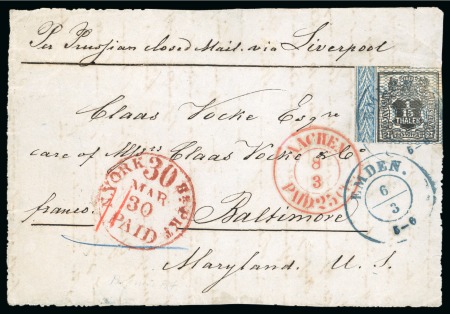 Per Prussian closed Mail. via Liverpool
1/15
THALER
Claas Vocke Esqre
care of Messrs Claas Vocke & Co
franco.
Baltimore
Maryland. U. S.
N. YORK 30 Br. PKT
MAR
30
PAID
AACHEN
8
3
PAID 25
EMDEN.
6
3
5-6